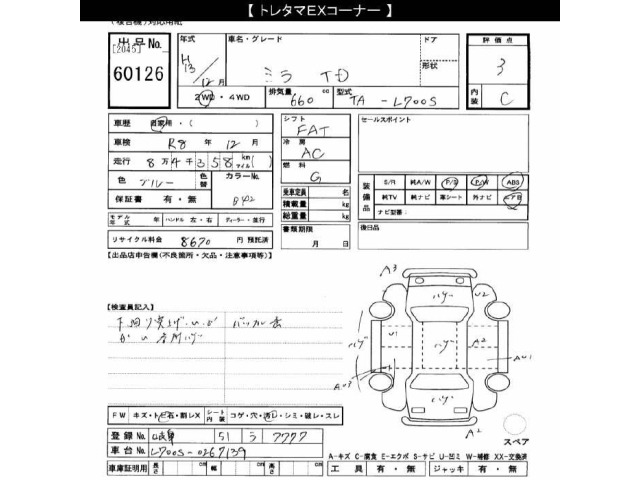 【 トレタマEXコーナー 】
出品No.
[2045]
60126
年式
H13
12月
車名・グレード
ミラ TD
ドア
形状
評価点
3
内装
C
2WD・4WD
排気量
660 cc
型式
TA - L700S
車歴 自家用・( )
車検 R8年 12月
走行 8万4千358 km マイル ( )
色 ブルー
色替
カラーNo.
B42
保証書 有・無
モデル年式
ハンドル 左・右
ディーラー・並行
リサイクル料金 8670 円 預託済
シフト
FAT
冷房
AC
燃料
G
乗車定員 名
積載量 kg
総重量 kg
書類期限
月 日
セールスポイント
装備品
S/R 純A/W P/S P/W ABS
純TV 純ナビ 革シート 外ナビ エアB
ナビ型番:
後日品
【出品店申告欄(不良箇所・欠品・注意事項等)】
【検査員記入】
A3
ハゲ
U2
U1
ハゲ
ハゲ
A2
AU1
ハゲ
A2
スペア
FW キズ・トビ石・割レX
シート内装 コゲ・穴・汚レ・シミ・破レ・スレ
登録No. 51 ラ 7777
車台No. L700S-0267139
車庫証明用 長さ cm 幅 cm 高さ cm
A-キズ C-腐食 E-エクボ S-サビ U-凹ミ W-補修 XX-交換済
工具 有・無 ジャッキ 有・無